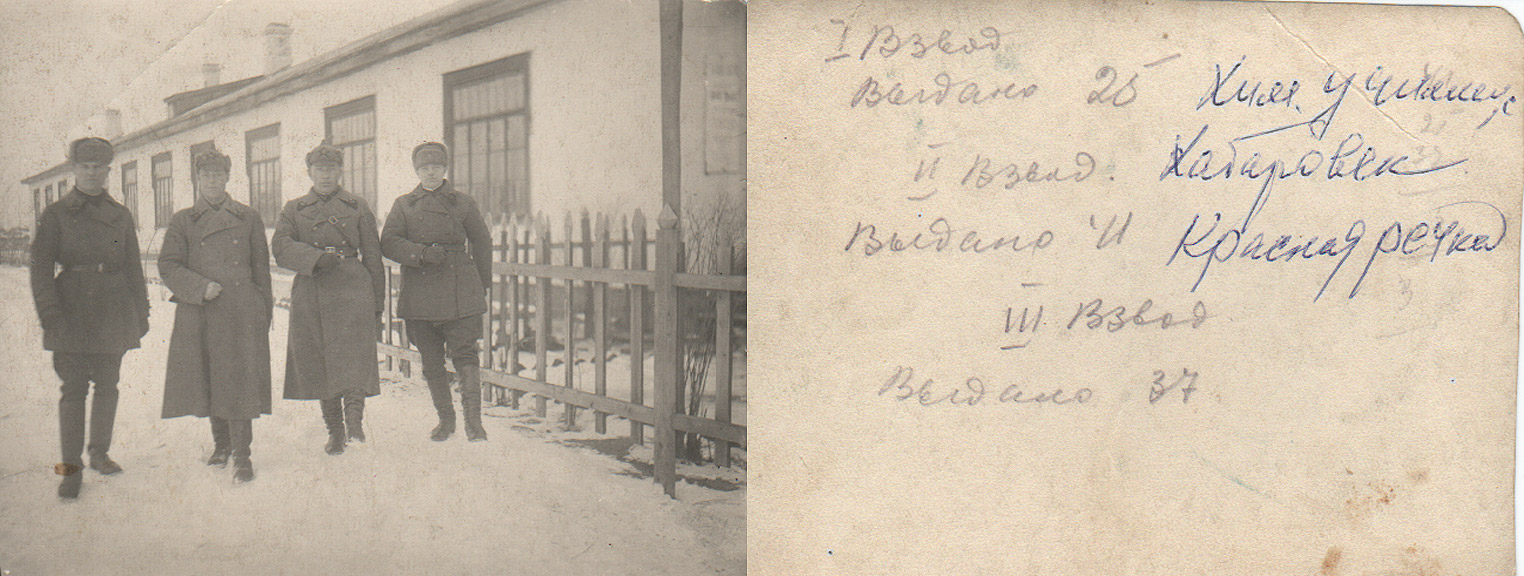 I Взвод
Выдано 25
II Взвод.
Выдано 41
III Взвод
Выдано 37
Хим. училище
Хабаровск
Красная речка